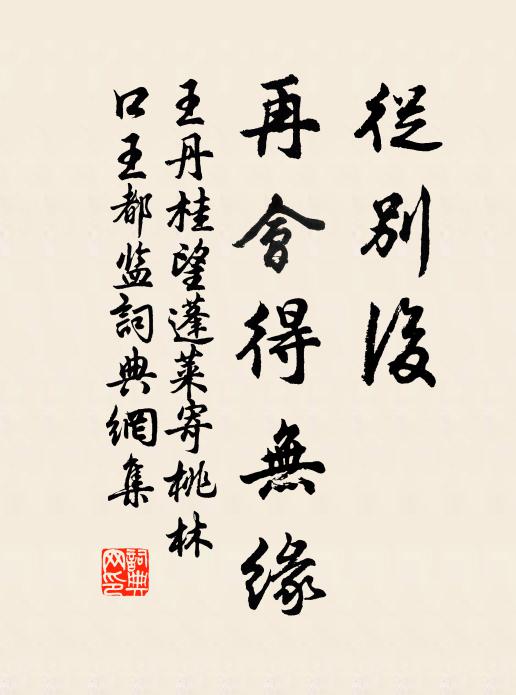 從別後
再會得無緣
王丹桂望蓬萊寄桃林
口王都监詞典網集
詞典網印